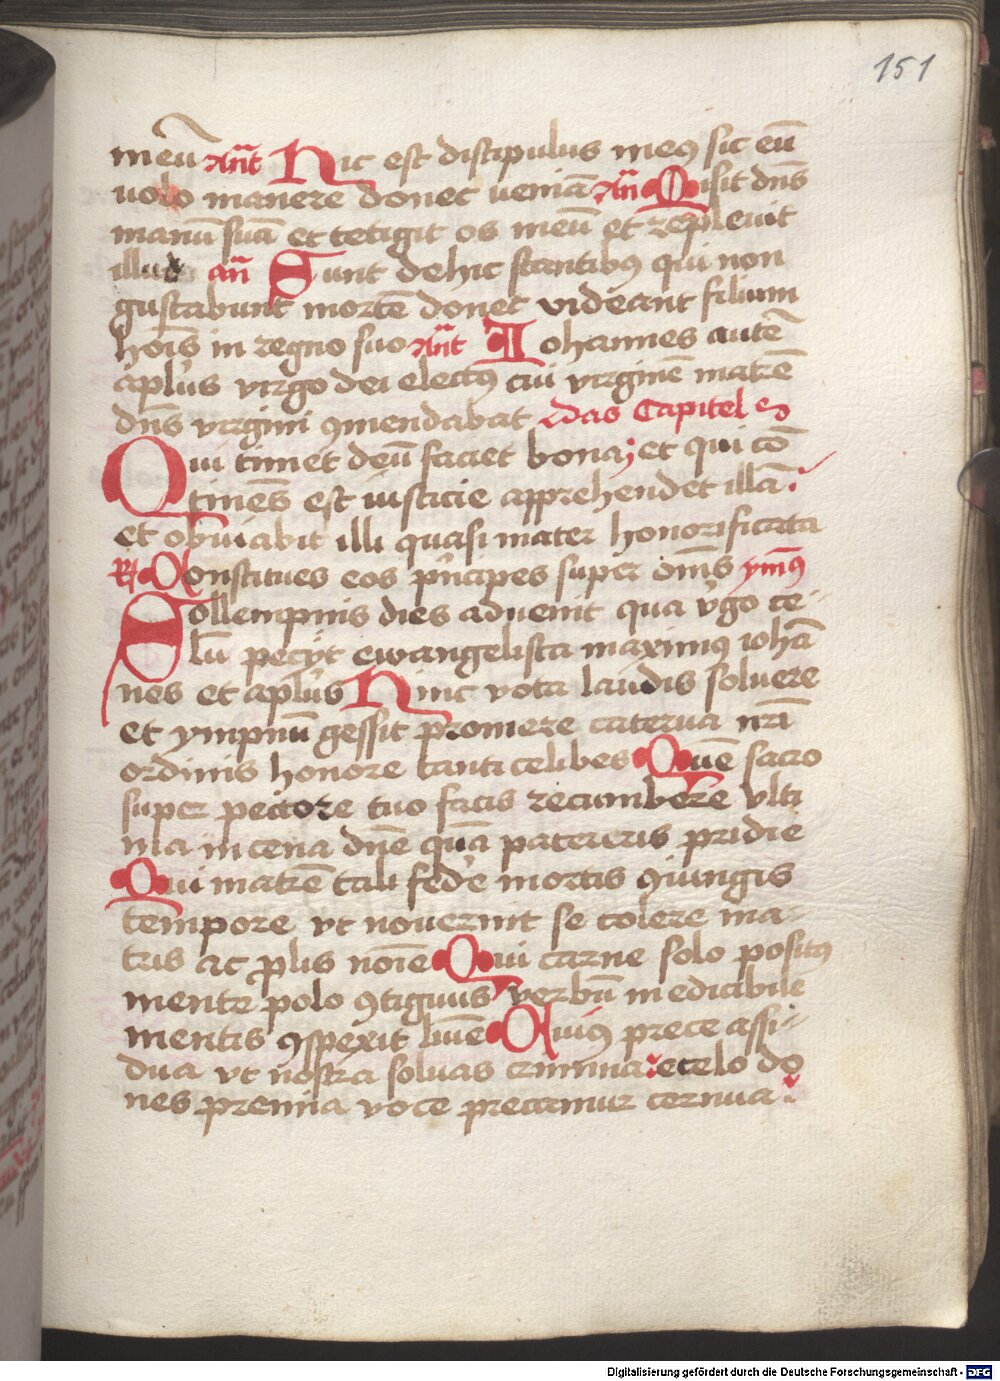 151
meū Ant Hic est discipulus meꝰ sic eū
volo manere donec ueniā An Misit dn̄s
manū suā et tetigit os meū et repleuit
illud an̄ Sunt de hic stantibꝰ qui non
gustabunt mortē donec videant filium
hoīs in regno suo Ant Iohannes autē
aplūs virgo dei electꝰ cui virginē matrē
dn̄s virgini ꝯmendabat das Capitel
Qui timet deū faciet bona; et qui cō
tinēs est iusticie apprehendet illā.
et obuiabit illi quasi mater honorificata
R Constitues eos pͥncipes super om̄s ymꝰ
Sollempnis dies aduenit qua vͥgo ce-
lū pecÿt ewangelista maximꝰ iohā
nes et aplūs Hinc vota laudis soluere
et ympnū gessit promere caterua nr̄i
ordinis honore tanti celibes Quē sacro
super pectore tuo facis recumbere vlti
ma in cena dn̄e quā patereris pridie
Qui matrē tali fede mortis ꝯiungis
tempore vt nouerint se colere ma-
tris ac ꝓlis noīe Qui carne solo positꝰ
mente polo ꝯtiguus verbū inedicibile
mentis ꝯspexit lumē Cuiꝰ prece assi-
dua vt nostra soluas crimina: et celo do
nes premia voce precamur cernua.
Digitalisierung gefördert durch die Deutsche Forschungsgemeinschaft - DFG